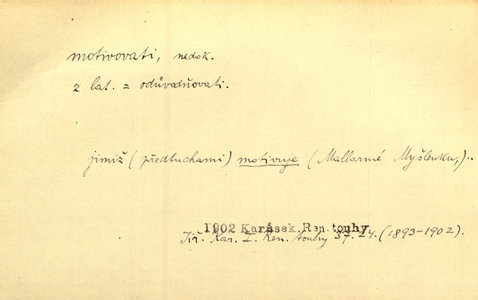 motivovati, nedok.
z lat. = odůvodňovati.
jimiž (předtuchami) motivuje (Mallarmé Myšlenku,)..
1902 Karásek, Ren. touhy
Jiř. Kar. I. Ren. touhy 37.24. (1893-1902).